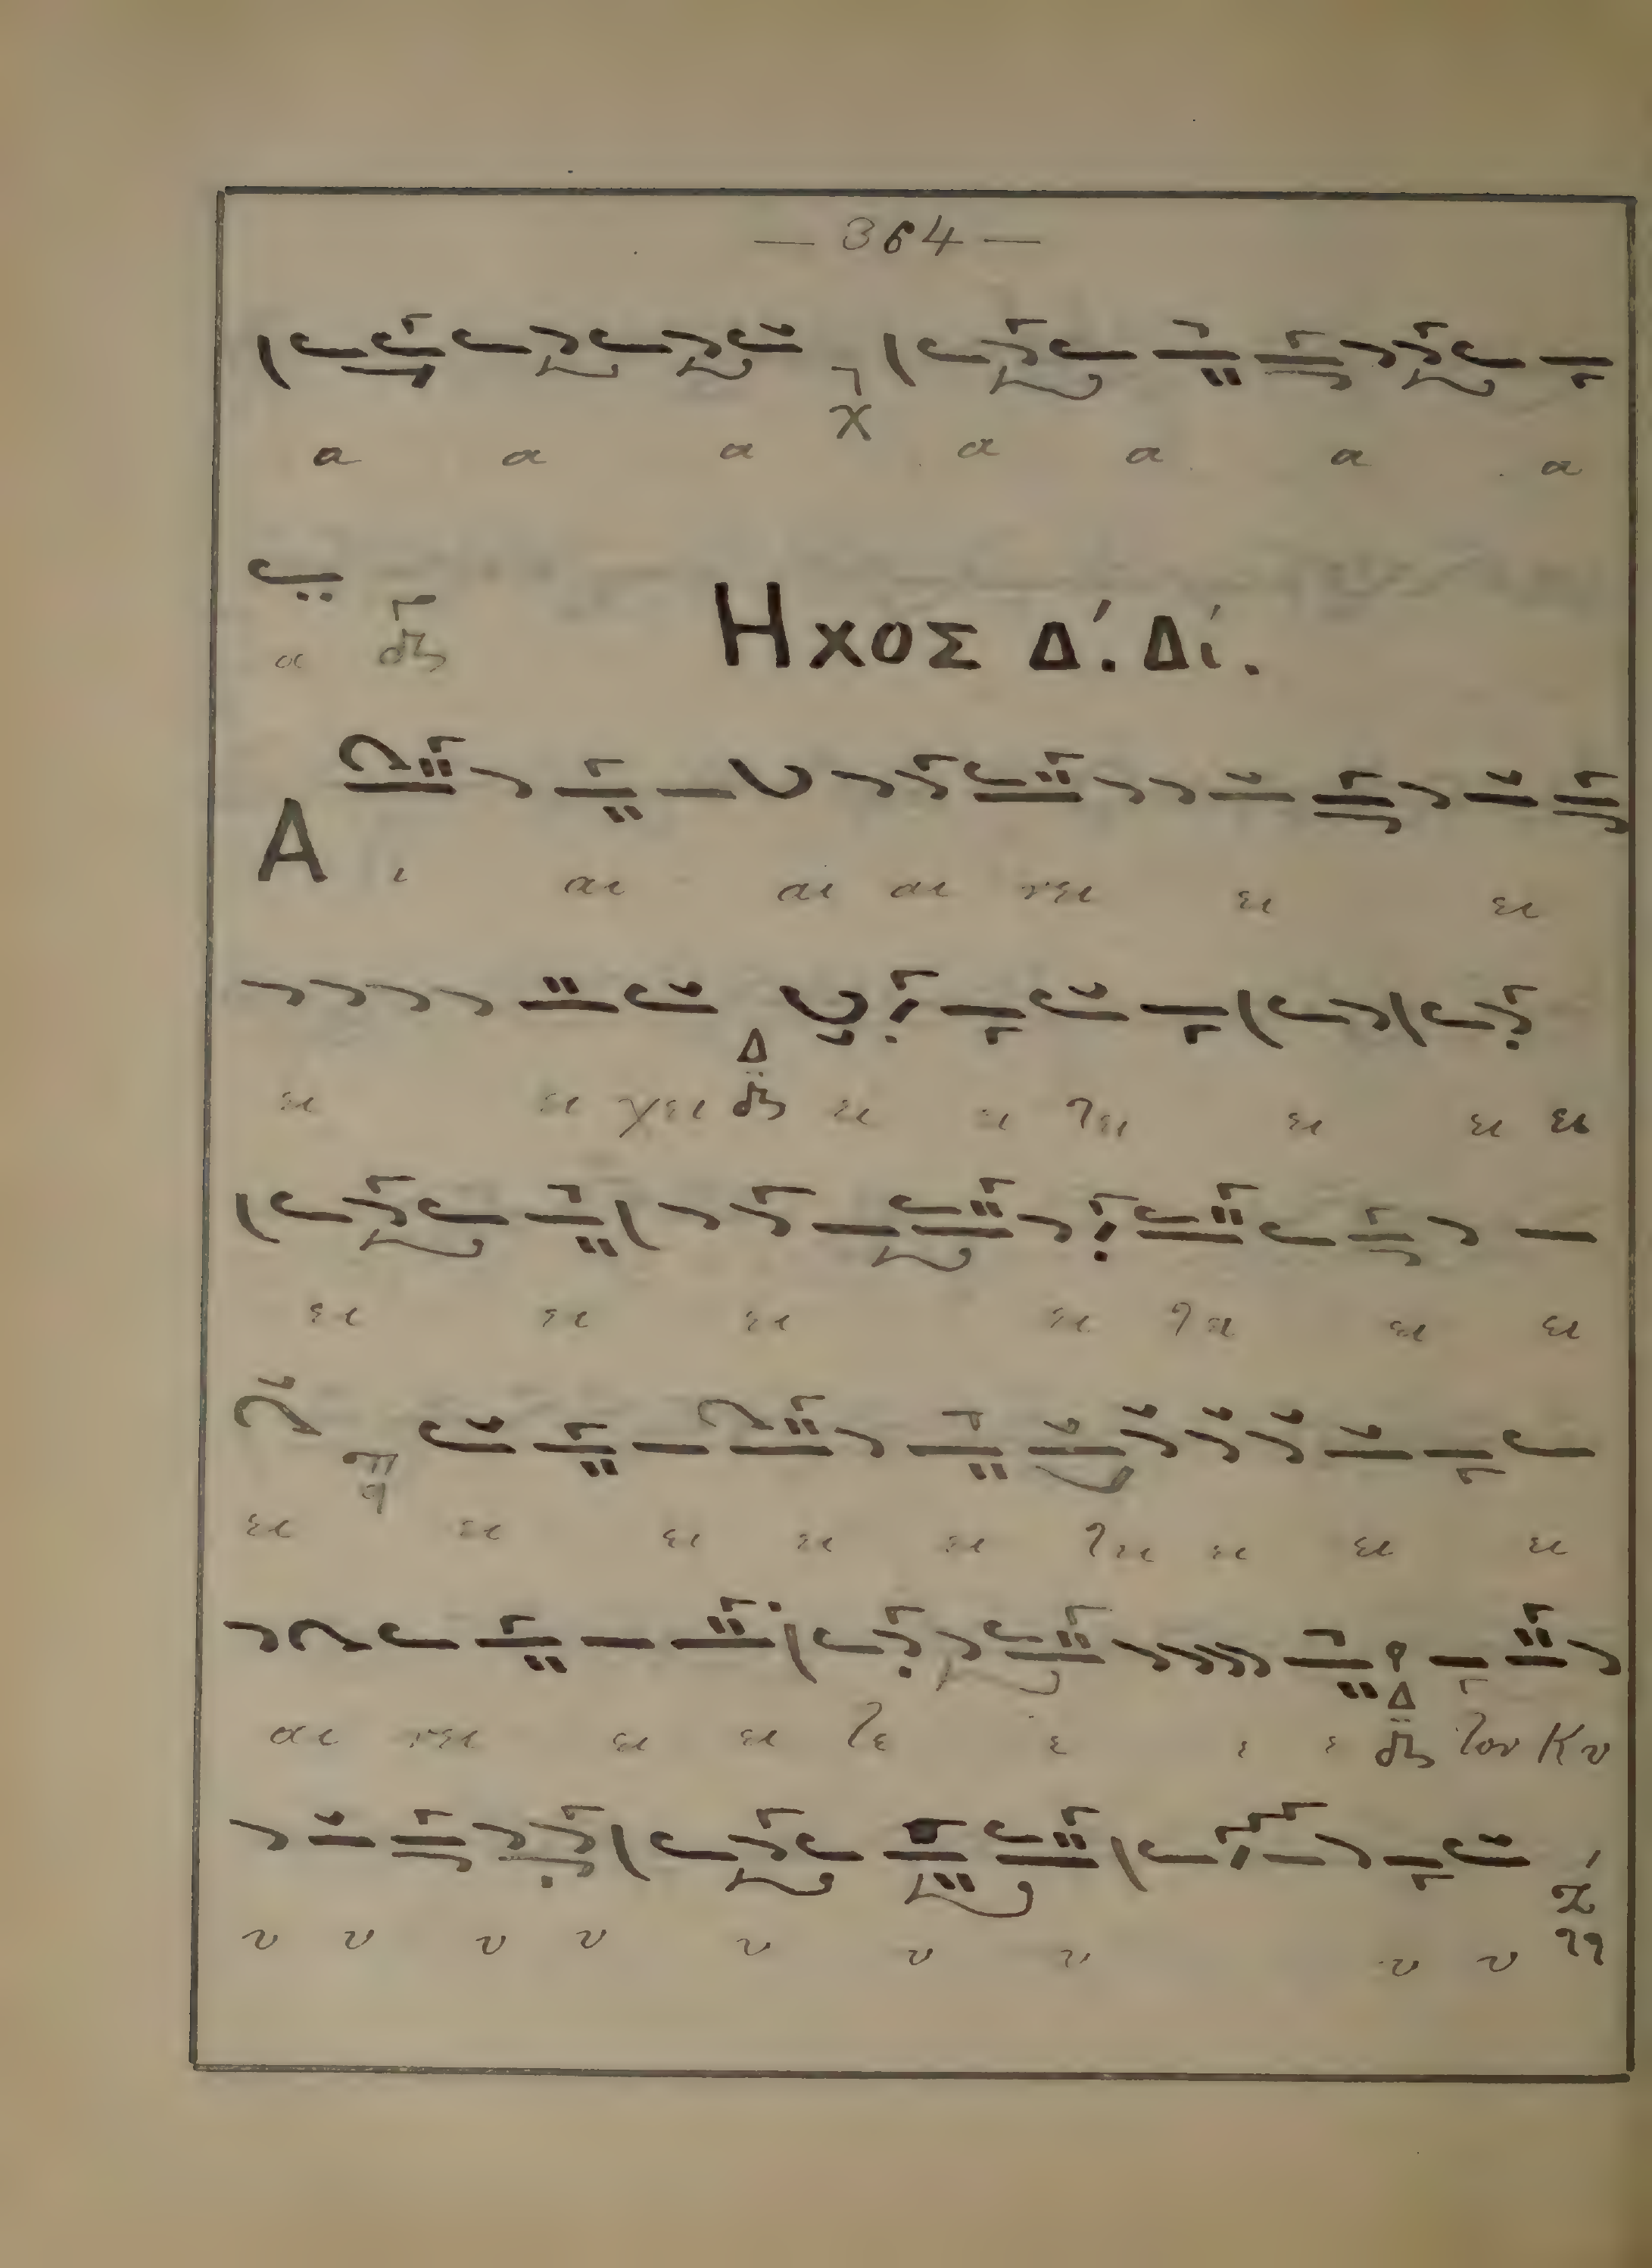 — 364 —
α α α χ α α α α
α Ηχος Δ΄. Δι.
Α ι αι αι αι νει ει ει
ει ει χει ει ει τει ει ει ει
ει ει ει ει τει ει ει
ει ει ει ει ει τει ει ει ει
αι νει ει ει τε ε ε ε τον Κυ
υ υ υ υ υ υ υ υ υ